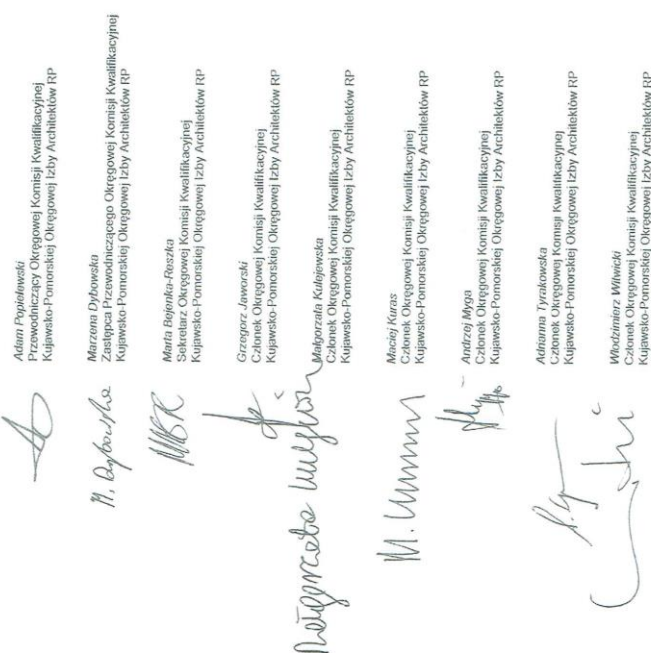 Adam Popielewski
Przewodniczący Okręgowej Komisji Kwalifikacyjnej
Kujawsko-Pomorskiej Okręgowej Izby Architektów RP
Marzena Dybowska
Zastępca Przewodniczącego Okręgowej Komisji Kwalifikacyjnej
Kujawsko-Pomorskiej Okręgowej Izby Architektów RP
M. Dybowska
Marta Bejenka-Reszka
Sekretarz Okręgowej Komisji Kwalifikacyjnej
Kujawsko-Pomorskiej Okręgowej Izby Architektów RP
MBR
Grzegorz Jaworski
Członek Okręgowej Komisji Kwalifikacyjnej
Kujawsko-Pomorskiej Okręgowej Izby Architektów RP
Małgorzata Kulejewska
Członek Okręgowej Komisji Kwalifikacyjnej
Kujawsko-Pomorskiej Okręgowej Izby Architektów RP
Małgorzata
Maciej Kuras
Członek Okręgowej Komisji Kwalifikacyjnej
Kujawsko-Pomorskiej Okręgowej Izby Architektów RP
M.
Andrzej Myga
Członek Okręgowej Komisji Kwalifikacyjnej
Kujawsko-Pomorskiej Okręgowej Izby Architektów RP
Adrianna Tyrakowska
Członek Okręgowej Komisji Kwalifikacyjnej
Kujawsko-Pomorskiej Okręgowej Izby Architektów RP
Włodzimierz Witwicki
Członek Okręgowej Komisji Kwalifikacyjnej
Kujawsko-Pomorskiej Okręgowej Izby Architektów RP